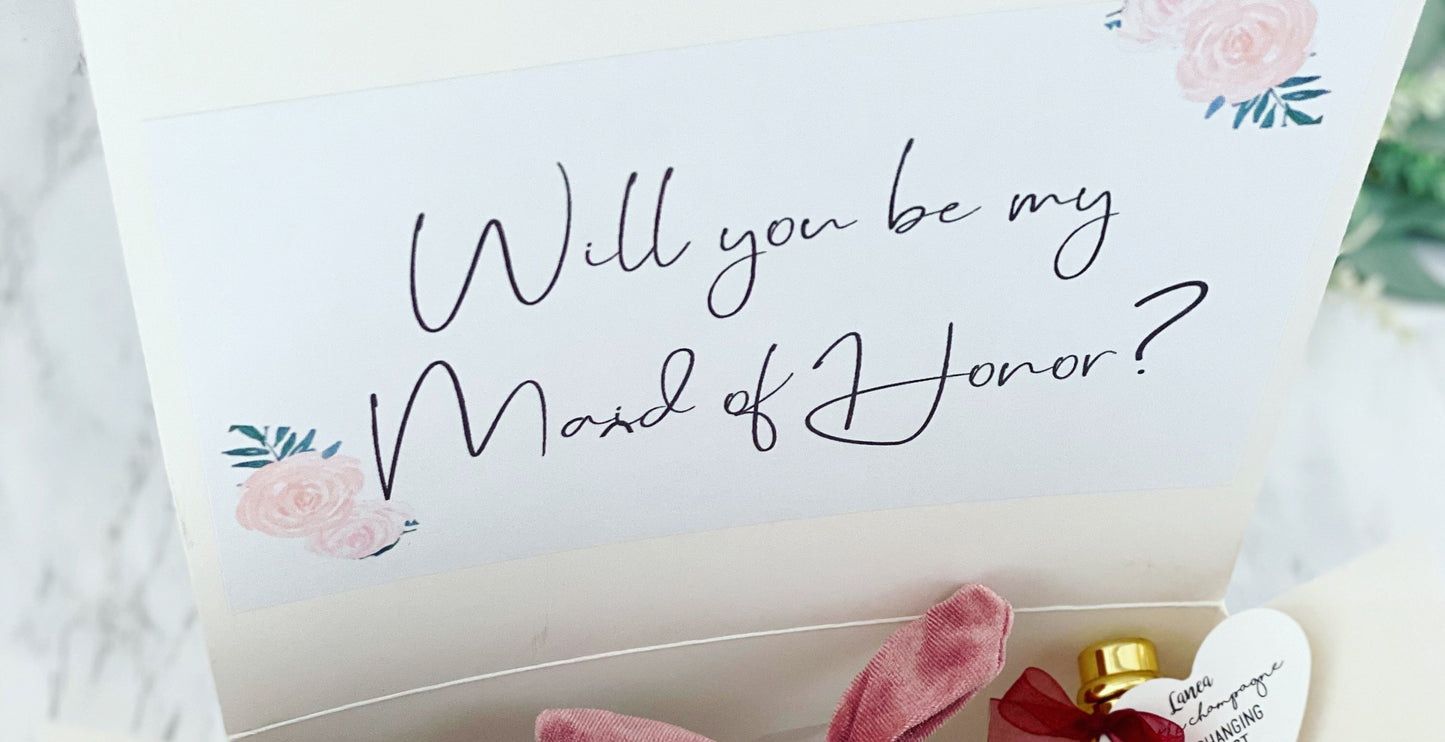 Will you be my
Maid of Honor?
Lanea
champagne
HANGING